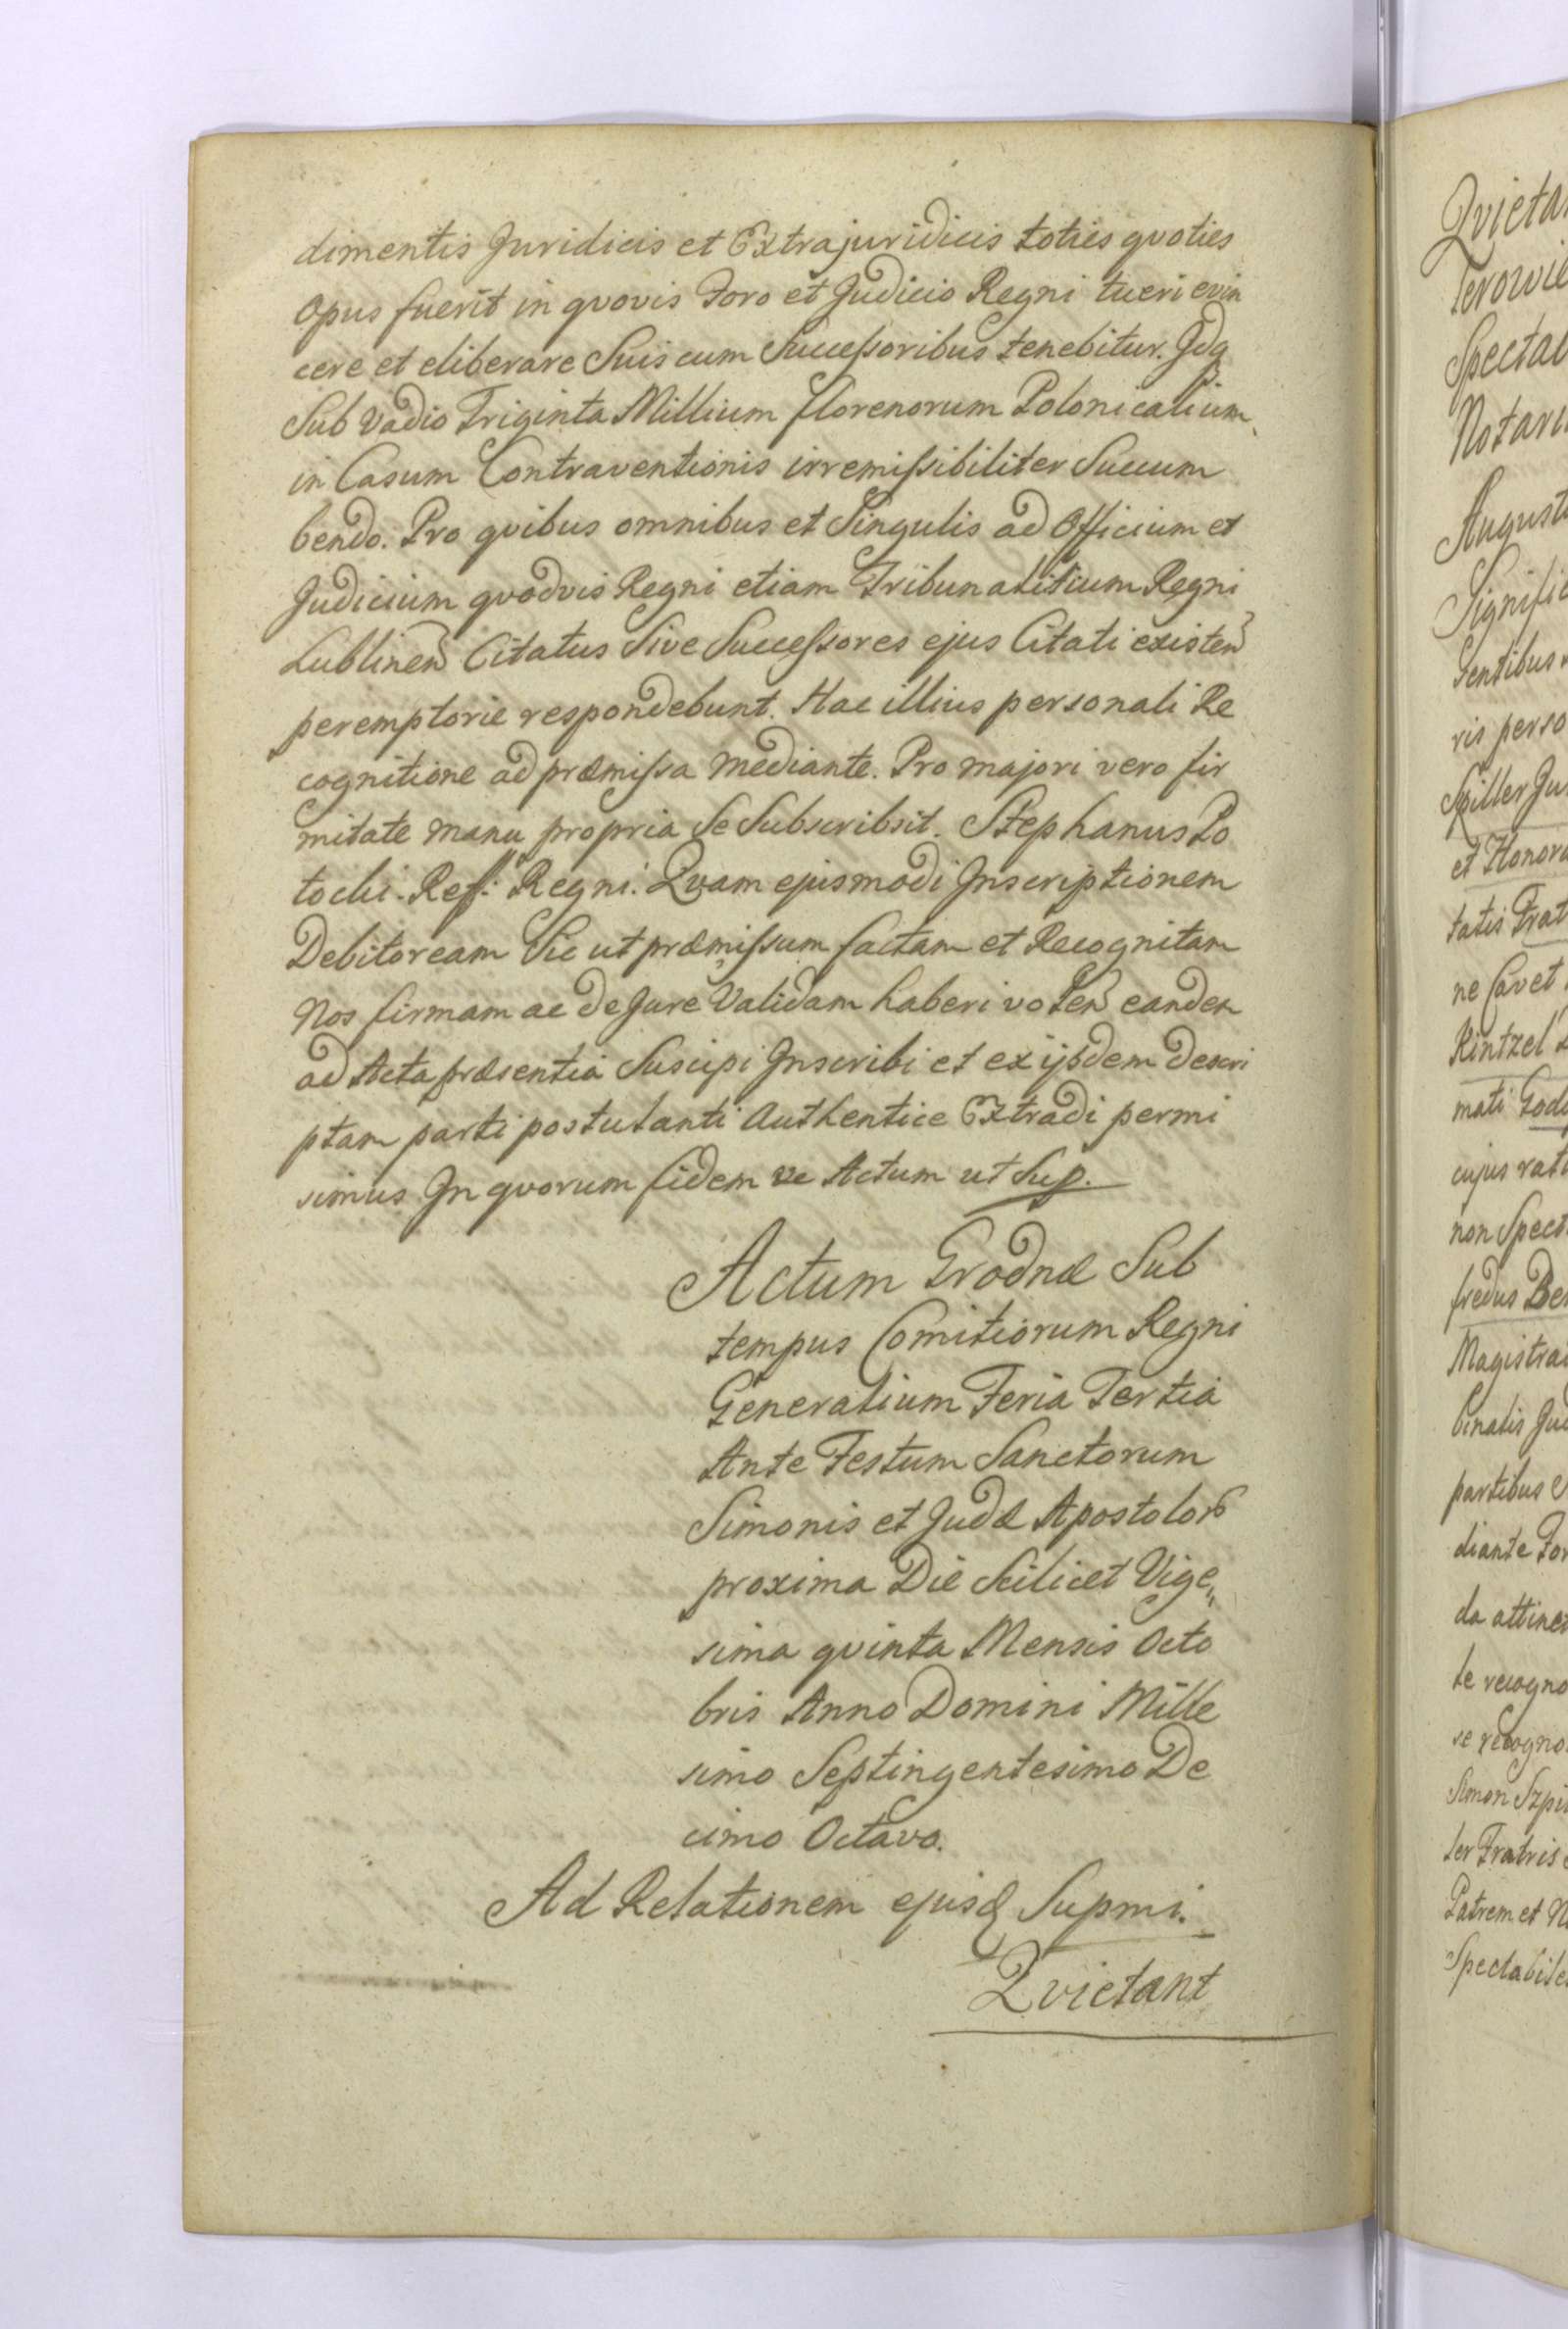 dimentis Juridicis et Extrajuridicis toties qvoties
opus fuerit in qvovis Foro et Judicio Regni tueri evin
cere et eliberare Suis cum Successoribus tenebitur. Idq
Sub Vadio Triginta Millium florenorum Polonicalium
in Casum Contraventionis irremissibiliter Succum
bendo. Pro qvibus omnibus et Singulis ad Officium et
Judicium qvodvis Regni etiam Tribunalitium Regni
Lublinen Citatus Sive Successores ejus Citati existen
peremptorie respondebunt. Hac illius personali Re
cognitione ad præmissa mediante. Pro majori vero fir
mitate manu propria Se Subscribsit. Stephanus Po
tocki. Reff: Regni. Qvam ejusmodi Inscriptionem
Debitoream Sic ut præmissum factam et Recognitam
Nos firmam ac de Jure Validam haberi volen eandem
ad Acta præsentia Suscipi Inscribi et ex ijsdem descri
ptam parti postulanti Authentice Extradi permi
simus In qvorum fidem ve Actum ut Sup.
Actum Grodnæ Sub
tempus Comitiorum Regni
Generalium Feria Tertia
Ante Festum Sanctorum
Simonis et Judæ Apostolor
proxima Die Scilicet Vige„
sima qvinta Mensis Octo
bris Anno Domini Mille
simo Septingentesimo De
cimo Octavo.
Ad Relationem ejusd Supmi.
Qvietant
Qvieta
Spectab
Notari
August
Signific
sentibus
ris perso
Spiller Ju
et Honora
tatis Frat
ne Cavet
Kintzel
mati God
cujus rati
non Spect
fredus Be
Magistra
binalis Jud
partibus
diante For
da attine
te recogno
se recogno
Simon Szpi
ler Fratris
Patrem et N
Spectabile